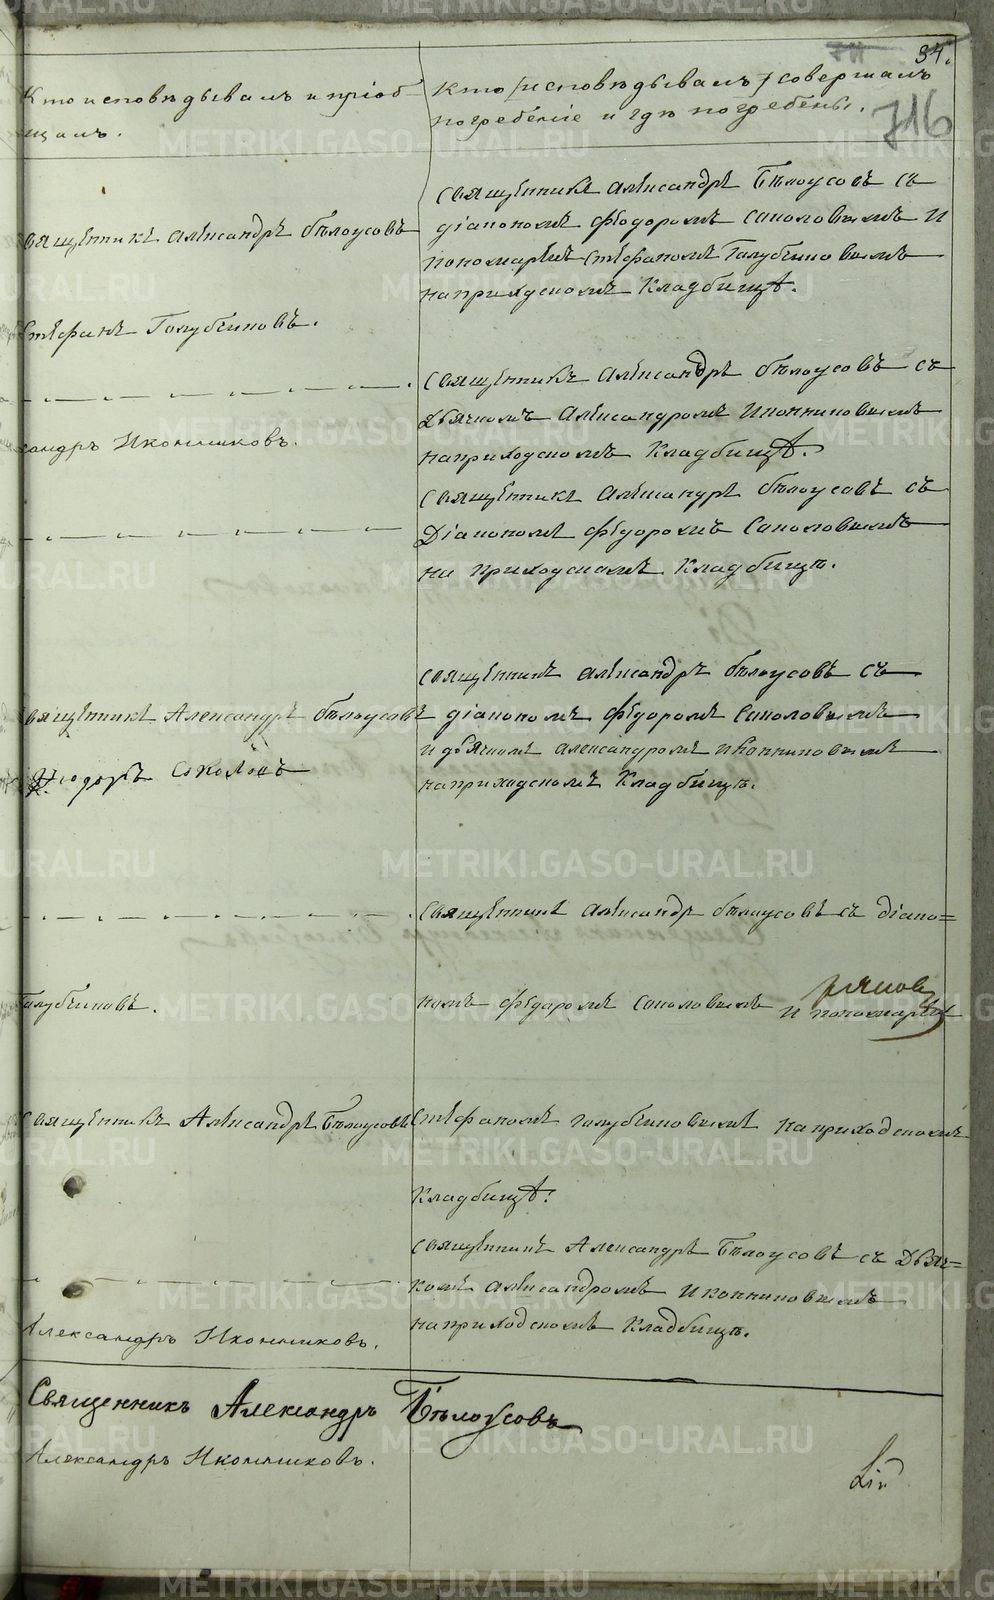 34.
716
Кто исповѣдывалъ и пріоб-
щалъ.
Кто /исповѣдывалъ/ совершалъ
погребеніе и гдѣ погребены.
Священникъ Александръ Бѣлоусовъ съ
діакономъ Ѳедоромъ Соколовымъ и
пономаремъ Стефаномъ Голубчиковымъ
на приходскомъ кладбищѣ.
вященникъ Александръ Бѣлоусовъ
Стефанъ Голубчиковъ.
Священникъ Александръ Бѣлоусовъ съ
Дьячкомъ Александромъ Иконниковымъ
на приходскомъ кладбищѣ.
сандръ Иконниковъ.
Священникъ Александръ Бѣлоусовъ съ
Діакономъ Ѳедоромъ Соколовымъ
на приходскомъ кладбищѣ.
Священникъ Александръ Бѣлоусовъ съ
вященникъ Александръ Бѣлоусовъ
діакономъ Ѳедоромъ Соколовымъ
и дьячкомъ Александромъ Иконниковымъ
на приходскомъ кладбищѣ.
Ѳеодоръ Соколовъ
Священникъ Александръ Бѣлоусовъ съ діако=
Голубчиковъ.
номъ Ѳедоромъ Соколовымъ и пономаремъ
Священникъ Александръ Бѣлоусовъ
Стефаномъ Голубчиковымъ на приходскомъ
кладбищѣ.
Священникъ Александръ Бѣлоусовъ съ Дьяч=
комъ Александромъ Иконниковымъ
на приходскомъ кладбищѣ.
Александръ Иконниковъ.
Священникъ Александръ Бѣлоусовъ
Александръ Иконниковъ.
METRIKI.GASO-URAL.RU